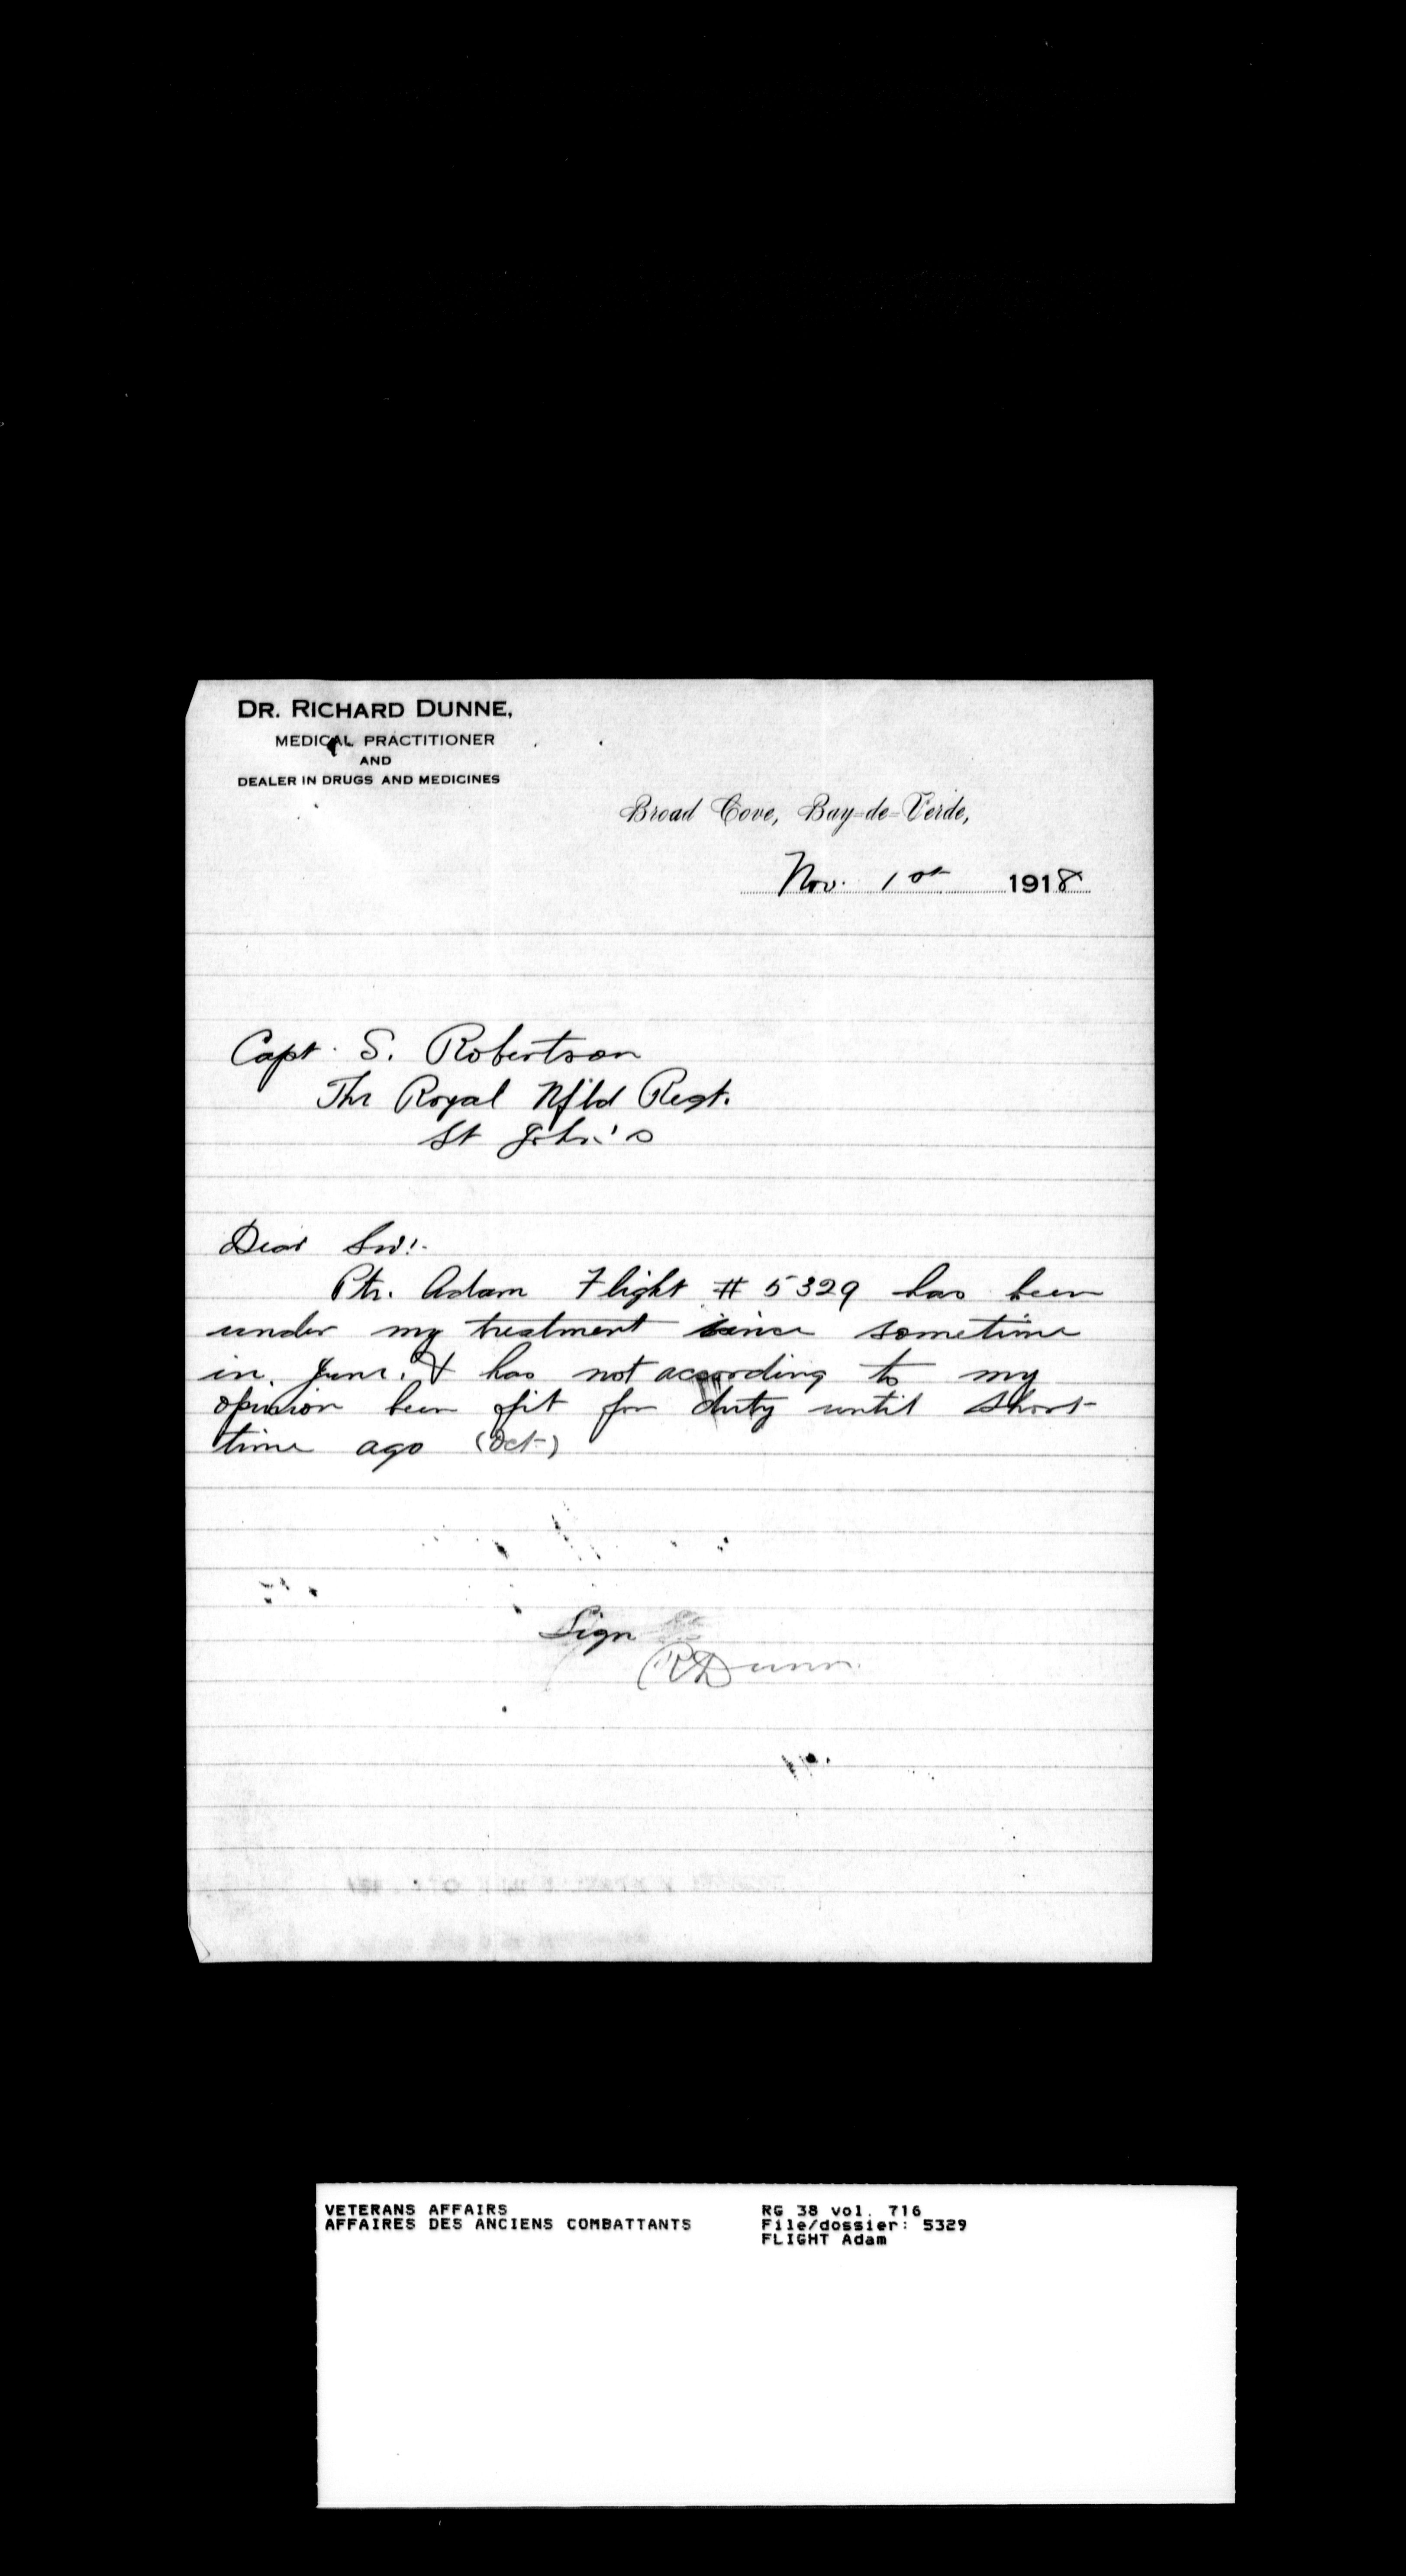 DR. RICHARD DUNNE,
MEDICAL PRACTITIONER
AND
DEALER IN DRUGS AND MEDICINES
Broad Cove, Bay-de-Verde,
Nov. 1st 1918
Capt. S. Robertson
The Royal Nfld Regt.
St John's
Dear Sir:-
Pte. Adam Flight # 5329 has been
under my treatment since sometime
in June. & has not according to my
opinion been fit for duty until short
time ago (Oct)
Sign
R Dunne
VETERANS AFFAIRS RG 38 vol. 716
AFFAIRES DES ANCIENS COMBATTANTS File/dossier: 5329
FLIGHT Adam